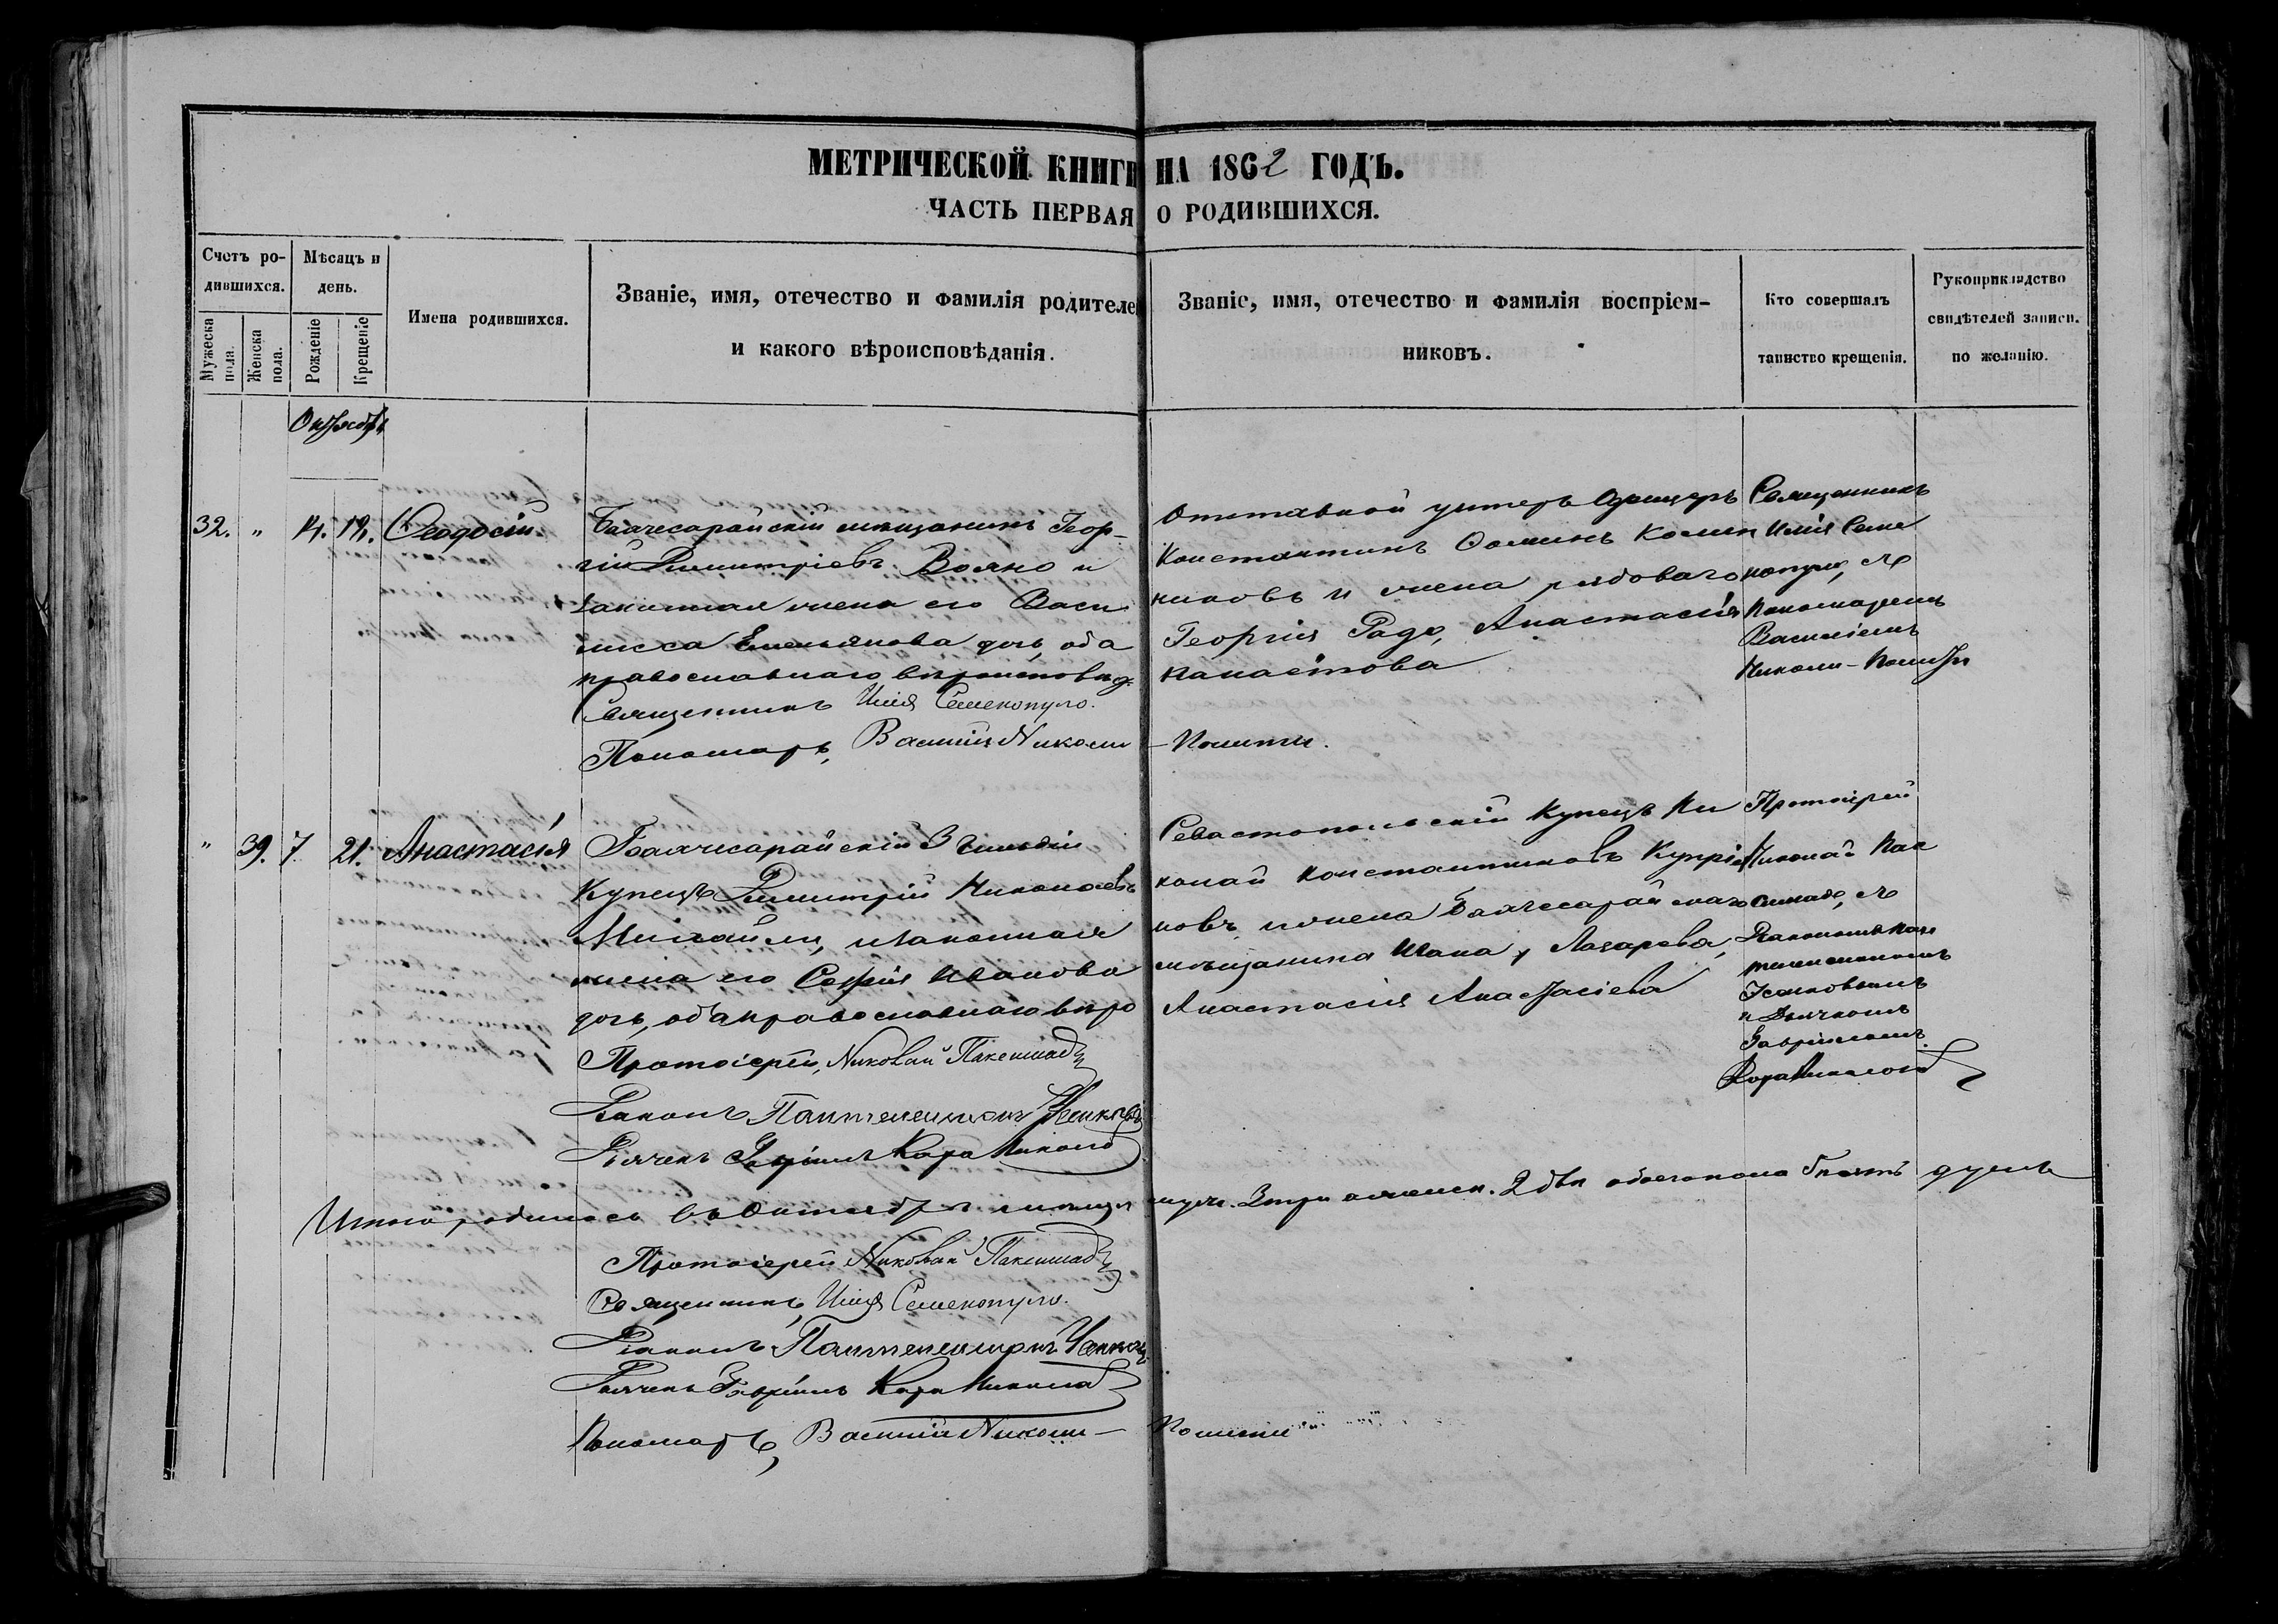 МЕТРИЧЕСКОЙ КНИГИ НА 1862 ГОДЪ.
ЧАСТЬ ПЕРВАЯ О РОДИВШИХСЯ.
Счетъ ро-
дившихся.
Мужеска
пола.
Женска
пола.
Мѣсяцъ и
день.
Рожденіе
Крещеніе
Имена родившихся.
Званіе, имя, отечество и фамилія родителей
и какого вѣроисповѣданія.
Званіе, имя, отечество и фамилія воспріем-
никовъ.
Кто совершалъ
таинство крещенія.
Рукоприкладство
свидѣтелей записи.
по желанію.
Октябрь
32. " 14. 19. Ѳеодосій
Бахчесарайскій мѣщанинъ Геор-
гій Димитріевъ Вояно и
законная жена его Васи
лисса Емельянова дочь, оба
православнаго вѣроисповѣд.
Священникъ Илія Семенопуло.
Пономарь, Василій Николи - Помити.
Отставной унтеръ Офицеръ
Константинъ Ѳоминъ
никовъ и жена рядоваго
Георгія Радо, Анастасія
Священникъ
Илія Семе
нопуло, съ
Пономаремъ
Василіемъ
Николи - Помити
" 39. 7 21. Анастасія
Бахчесарайскій 3 гильдіи
Купецъ Димитрій Николаевъ
Михайли, и законная
жена его Софія Иванова
дочь, оба православнаго вѣро
Протоіерей, Николай Паксимади
Діаконъ Пантелеимонъ
Дьячекъ Гавріилъ Кара Никола
Севастопольскій Купецъ Ни
колай Константиновъ Купріа
новъ, и жена Бахчесарайскаго
мѣщанина Лазарева,
Анастасія Анастасіева
Протоіерей
Николай Пак
симади, съ
Діакономъ Пан
телеимономъ
и Дьячкомъ
Гавріиломъ
Кара Никола
Итого родилось въ Октябрѣ мѣсяцѣ муж. 3 три женск. 2 двѣ обоего пола 5 пять душъ
Протоіерей Николай Паксимади
Священникъ, Илія Семенопуло.
Діаконъ Пантелеимонъ
Дьячекъ Гавріилъ Кара Никола
Пономарь, Василій Николи - Помити